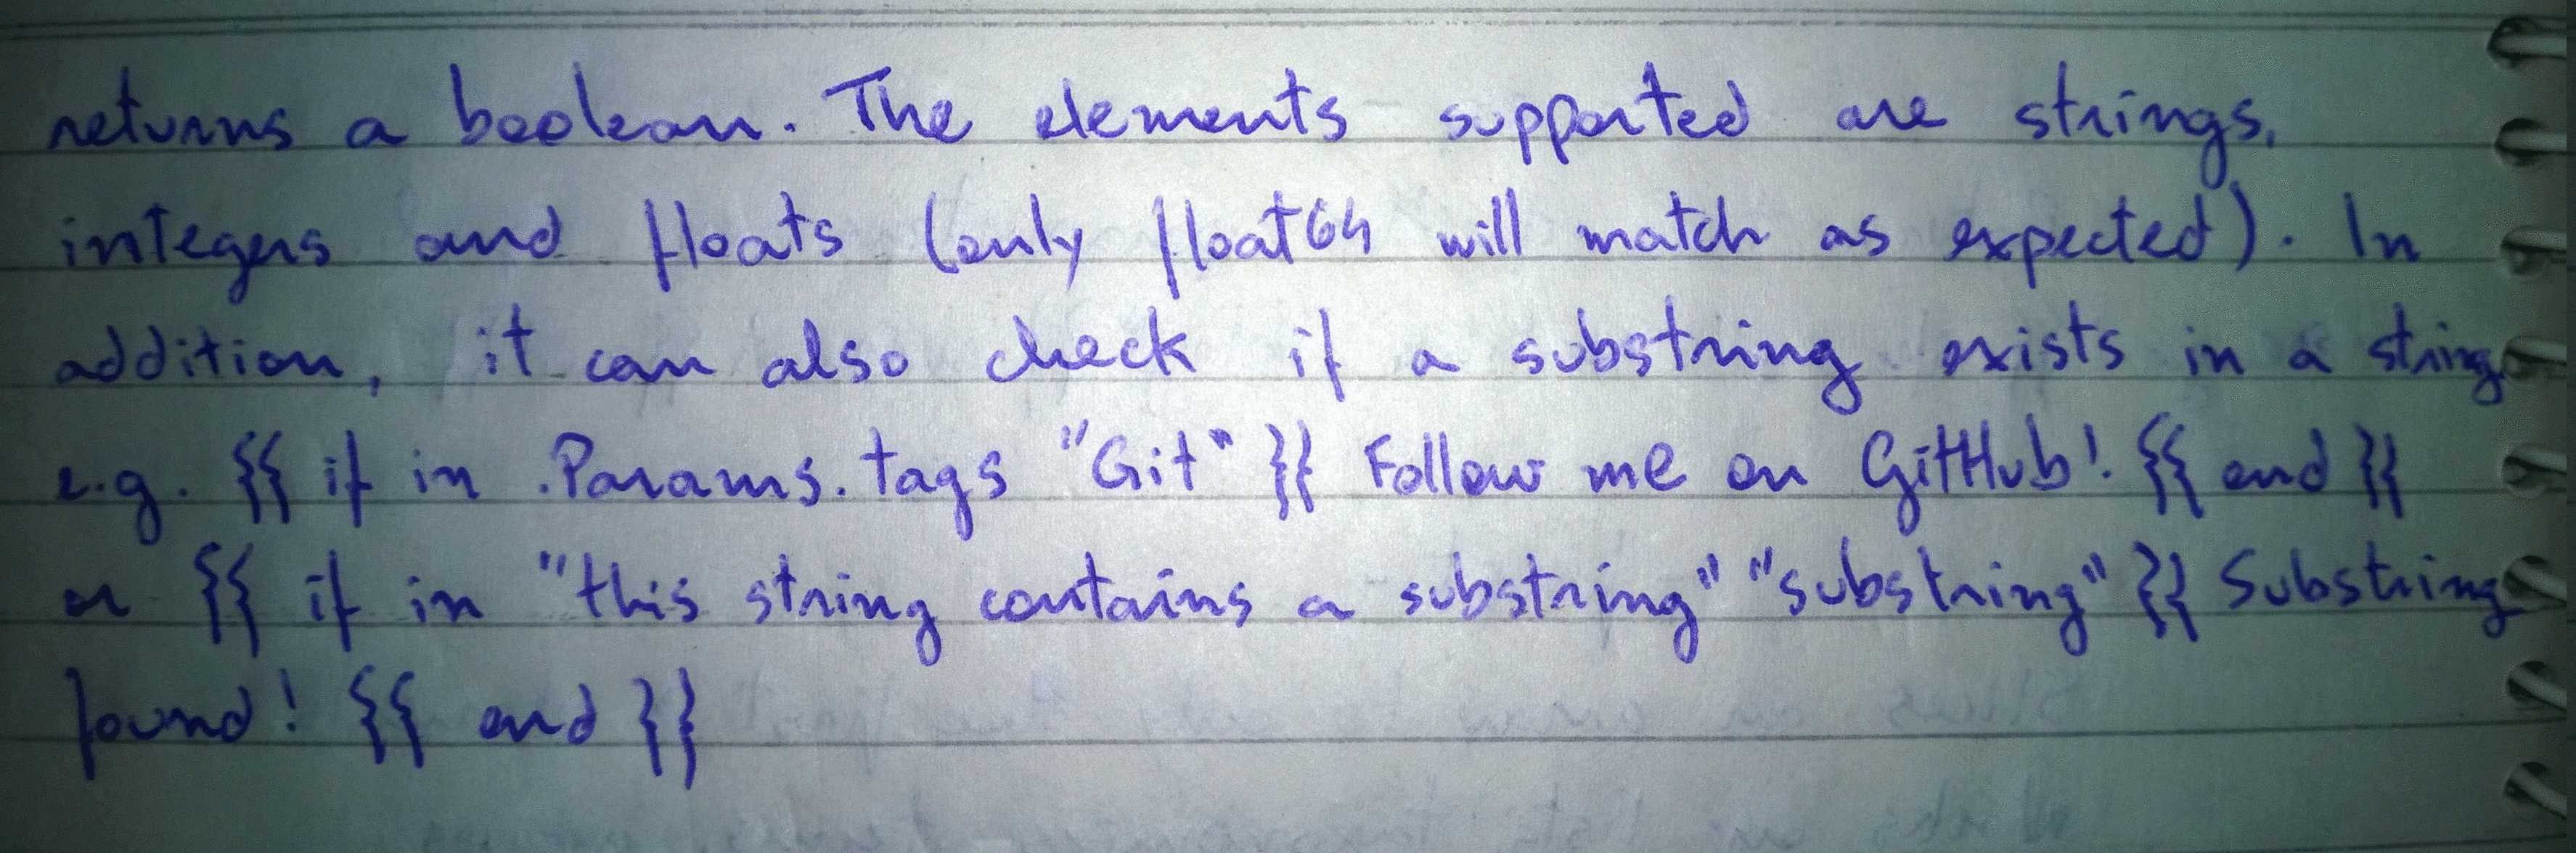 returns a boolean. The elements supported are strings,
integers and floats (only float64 will match as expected). In
addition, it can also check if a substring exists in a string
e.g. {{ if in .Params.tags "Git" }} Follow me on GitHub! {{ end }}
or {{ if in "this string contains a substring" "substring" }} Substring
found! {{ end }}